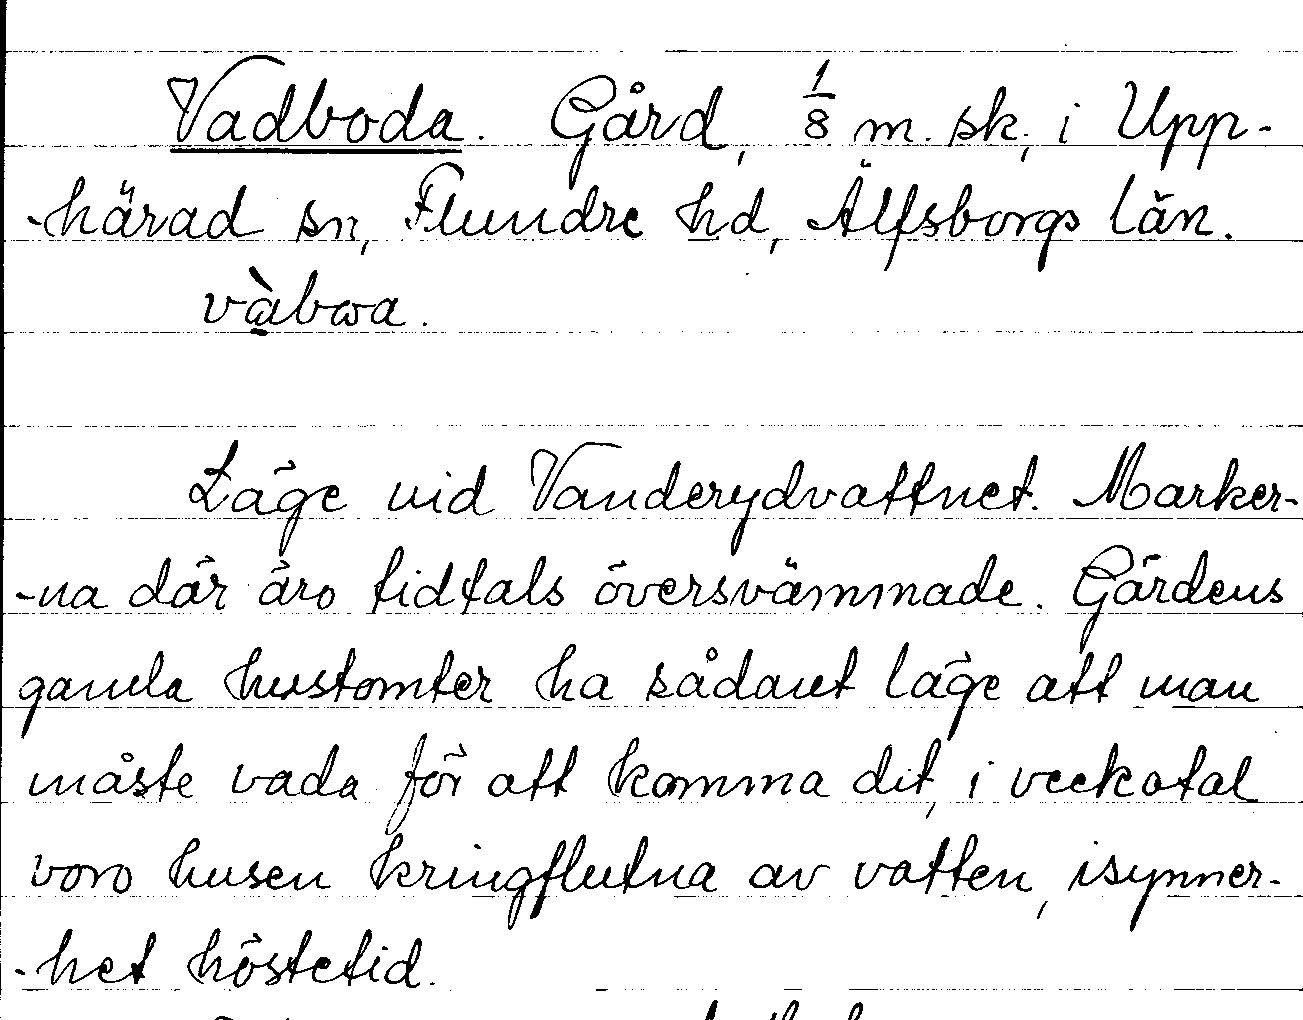 Vadboda. Gård, 1/8 m. sk., i Upp-
-härad sn, Flundre hd, Älfsborgs län.
vàbωa.
Läge vid Vanderydvattnet. Marker-
-na där äro tidtals översvämmade. Gårdens
gamla hustomter ha sådant läge att man
måste vada för att komma dit, i veckotal
voro husen kringflutna av vatten, isynner-
-het höstetid.